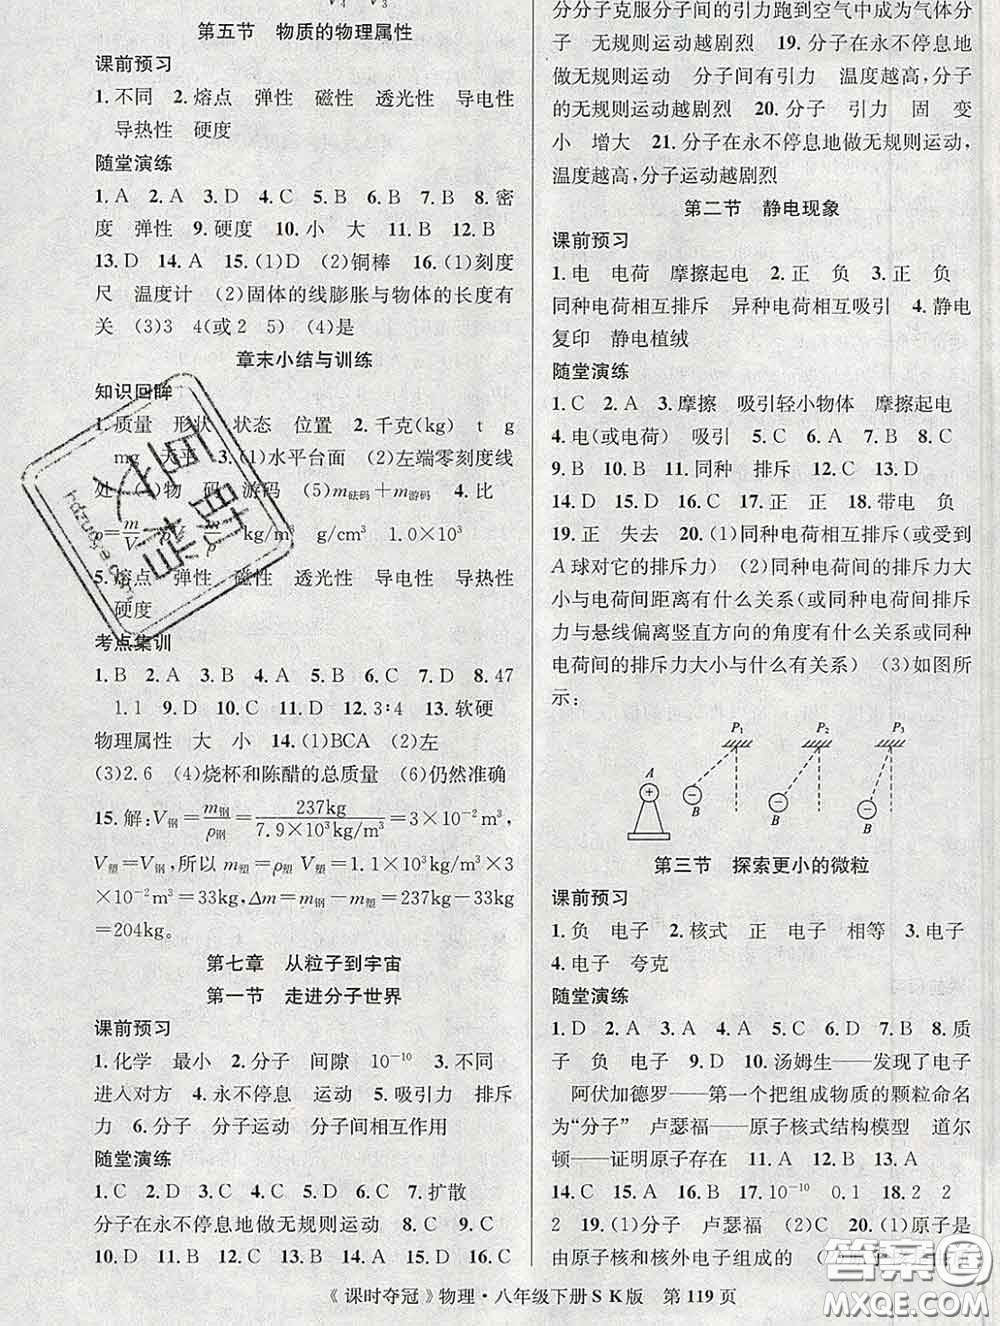 第五节　物质的物理属性
课前预习
1.不同　2.熔点　弹性　磁性　透光性　导电性
导热性　硬度
随堂演练
1.A　2.A　3.D　4.C　5.B　6.B　7.B　8.密
度　弹性　9.硬度　10.小　大　11.B　12.B
13.D　14.A　15.(1)D　(2)铜棒　16.(1)刻度
尺　温度计　(2)固体的线膨胀与物体的长度有
关　(3)3　4(或2　5)　(4)是
章末小结与训练
知识回眸
1.质量　形状　状态　位置　2.千克(kg)　t　g
mg　天平　3.(1)水平台面　(2)左端零刻度线
处　物　码　游码　(5)m砝码＋m游码　4.比
ρ＝m/V　g/cm³　1.0×10³
5.熔点　弹性　磁性　透光性　导电性　导热性
硬度
考点集训
1.B　2.B　3.A　4.B　5.C　6.D　7.D　8.47
1.1　9.D　10.C　11.D　12.3∶4　13.软硬
物理属性　大　小　14.(1)BCA　(2)左
(3)2.6　(4)烧杯和陈醋的总质量　(6)仍然准确
15.解:V钢＝m钢/ρ钢＝237kg/7.9×10³kg/m³＝3×10⁻²m³,
V塑＝V钢,所以 m塑＝ρ塑 V塑＝1.1×10³kg/m³×3
×10⁻²m³＝33kg,Δm＝m钢－m塑＝237kg－33kg
＝204kg。
第七章　从粒子到宇宙
第一节　走进分子世界
课前预习
1.化学　最小　2.分子　间隙　10⁻¹⁰　3.不同
进入对方　4.永不停息　运动　5.吸引力　排斥
力　6.分子　分子运动　分子间相互作用
随堂演练
1.C　2.D　3.D　4.C　5.D　6.C　7.扩散
分子在永不停息地做无规则运动　8.C　9.C
10.D　11.D　12.A　13.A　14.A　15.D　16.C
分分子克服分子间的引力跑到空气中成为气体分
子　无规则运动越剧烈　19.分子在永不停息地
做无规则运动　分子间有引力　温度越高,分子
的无规则运动越剧烈　20.分子　引力　固　变
小　增大　21.分子在永不停息地做无规则运动,
温度越高,分子运动越剧烈
第二节　静电现象
课前预习
1.电　电荷　摩擦起电　2.正　负　3.正　负
同种电荷相互排斥　异种电荷相互吸引　4.静电
复印　静电植绒
随堂演练
1.C　2.A　3.摩擦　吸引轻小物体　摩擦起电
4.电(或电荷)　吸引　5.C　6.C　7.B　8.C
9.B　10.B　11.同种　排斥　12.C　13.D
14.D　15.D　16.C　17.正　正　18.带电　负
19.正　失去　20.(1)同种电荷相互排斥(或受到
A球对它的排斥力)　(2)同种电荷间的排斥力大
小与电荷间距离有什么关系(或同种电荷间排斥
力与悬线偏离竖直方向的角度有什么关系或同种
电荷间的排斥力大小与什么有关系)　(3)如图所
示:
P₁　P₂　P₃
A　B　B　B
第三节　探索更小的微粒
课前预习
1.负　电子　2.核式　正　电子　相等　3.电子
4.电子　夸克
随堂演练
1.D　2.D　3.C　4.C　5.A　6.D　7.B　8.质
子　负　电子　9.D　10.汤姆生——发现了电子
阿伏加德罗——第一个把组成物质的颗粒命名
为“分子”　卢瑟福——原子核式结构模型　道尔
顿——证明原子存在　11.A　12.B　13.A
14.C　15.A　16.B　17.10⁻¹⁰　0.1　18.2　2
2　19.(1)分子　卢瑟福　(2)C　20.(1)原子是
由原子核和核外电子组成的
《课时夺冠》物理·八年级下册SK版　第119页
答案圈